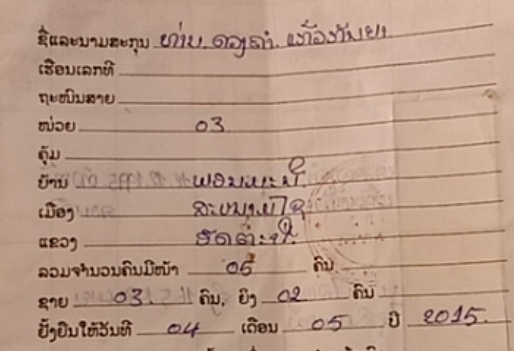 ຊື່ແລະນາມສະກຸນ ທ່ານ ດວງຄຳ ແກ້ວກັນຍາ
ເຮືອນເລກທີ
ຖະໜົນສາຍ
ໜ່ວຍ 03
ຄຸ້ມ
ບ້ານ
ເມືອງ ສະໜາມໄຊ
ແຂວງ ອັດຕະປື
ລວມຈຳນວນຄົນມີໜ້າ 05 ຄົນ
ຊາຍ 03 ຄົນ, ຍິງ 02 ຄົນ
ຢັ້ງຢືນໃຫ້ວັນທີ 04 ເດືອນ 05 ປີ 2015.